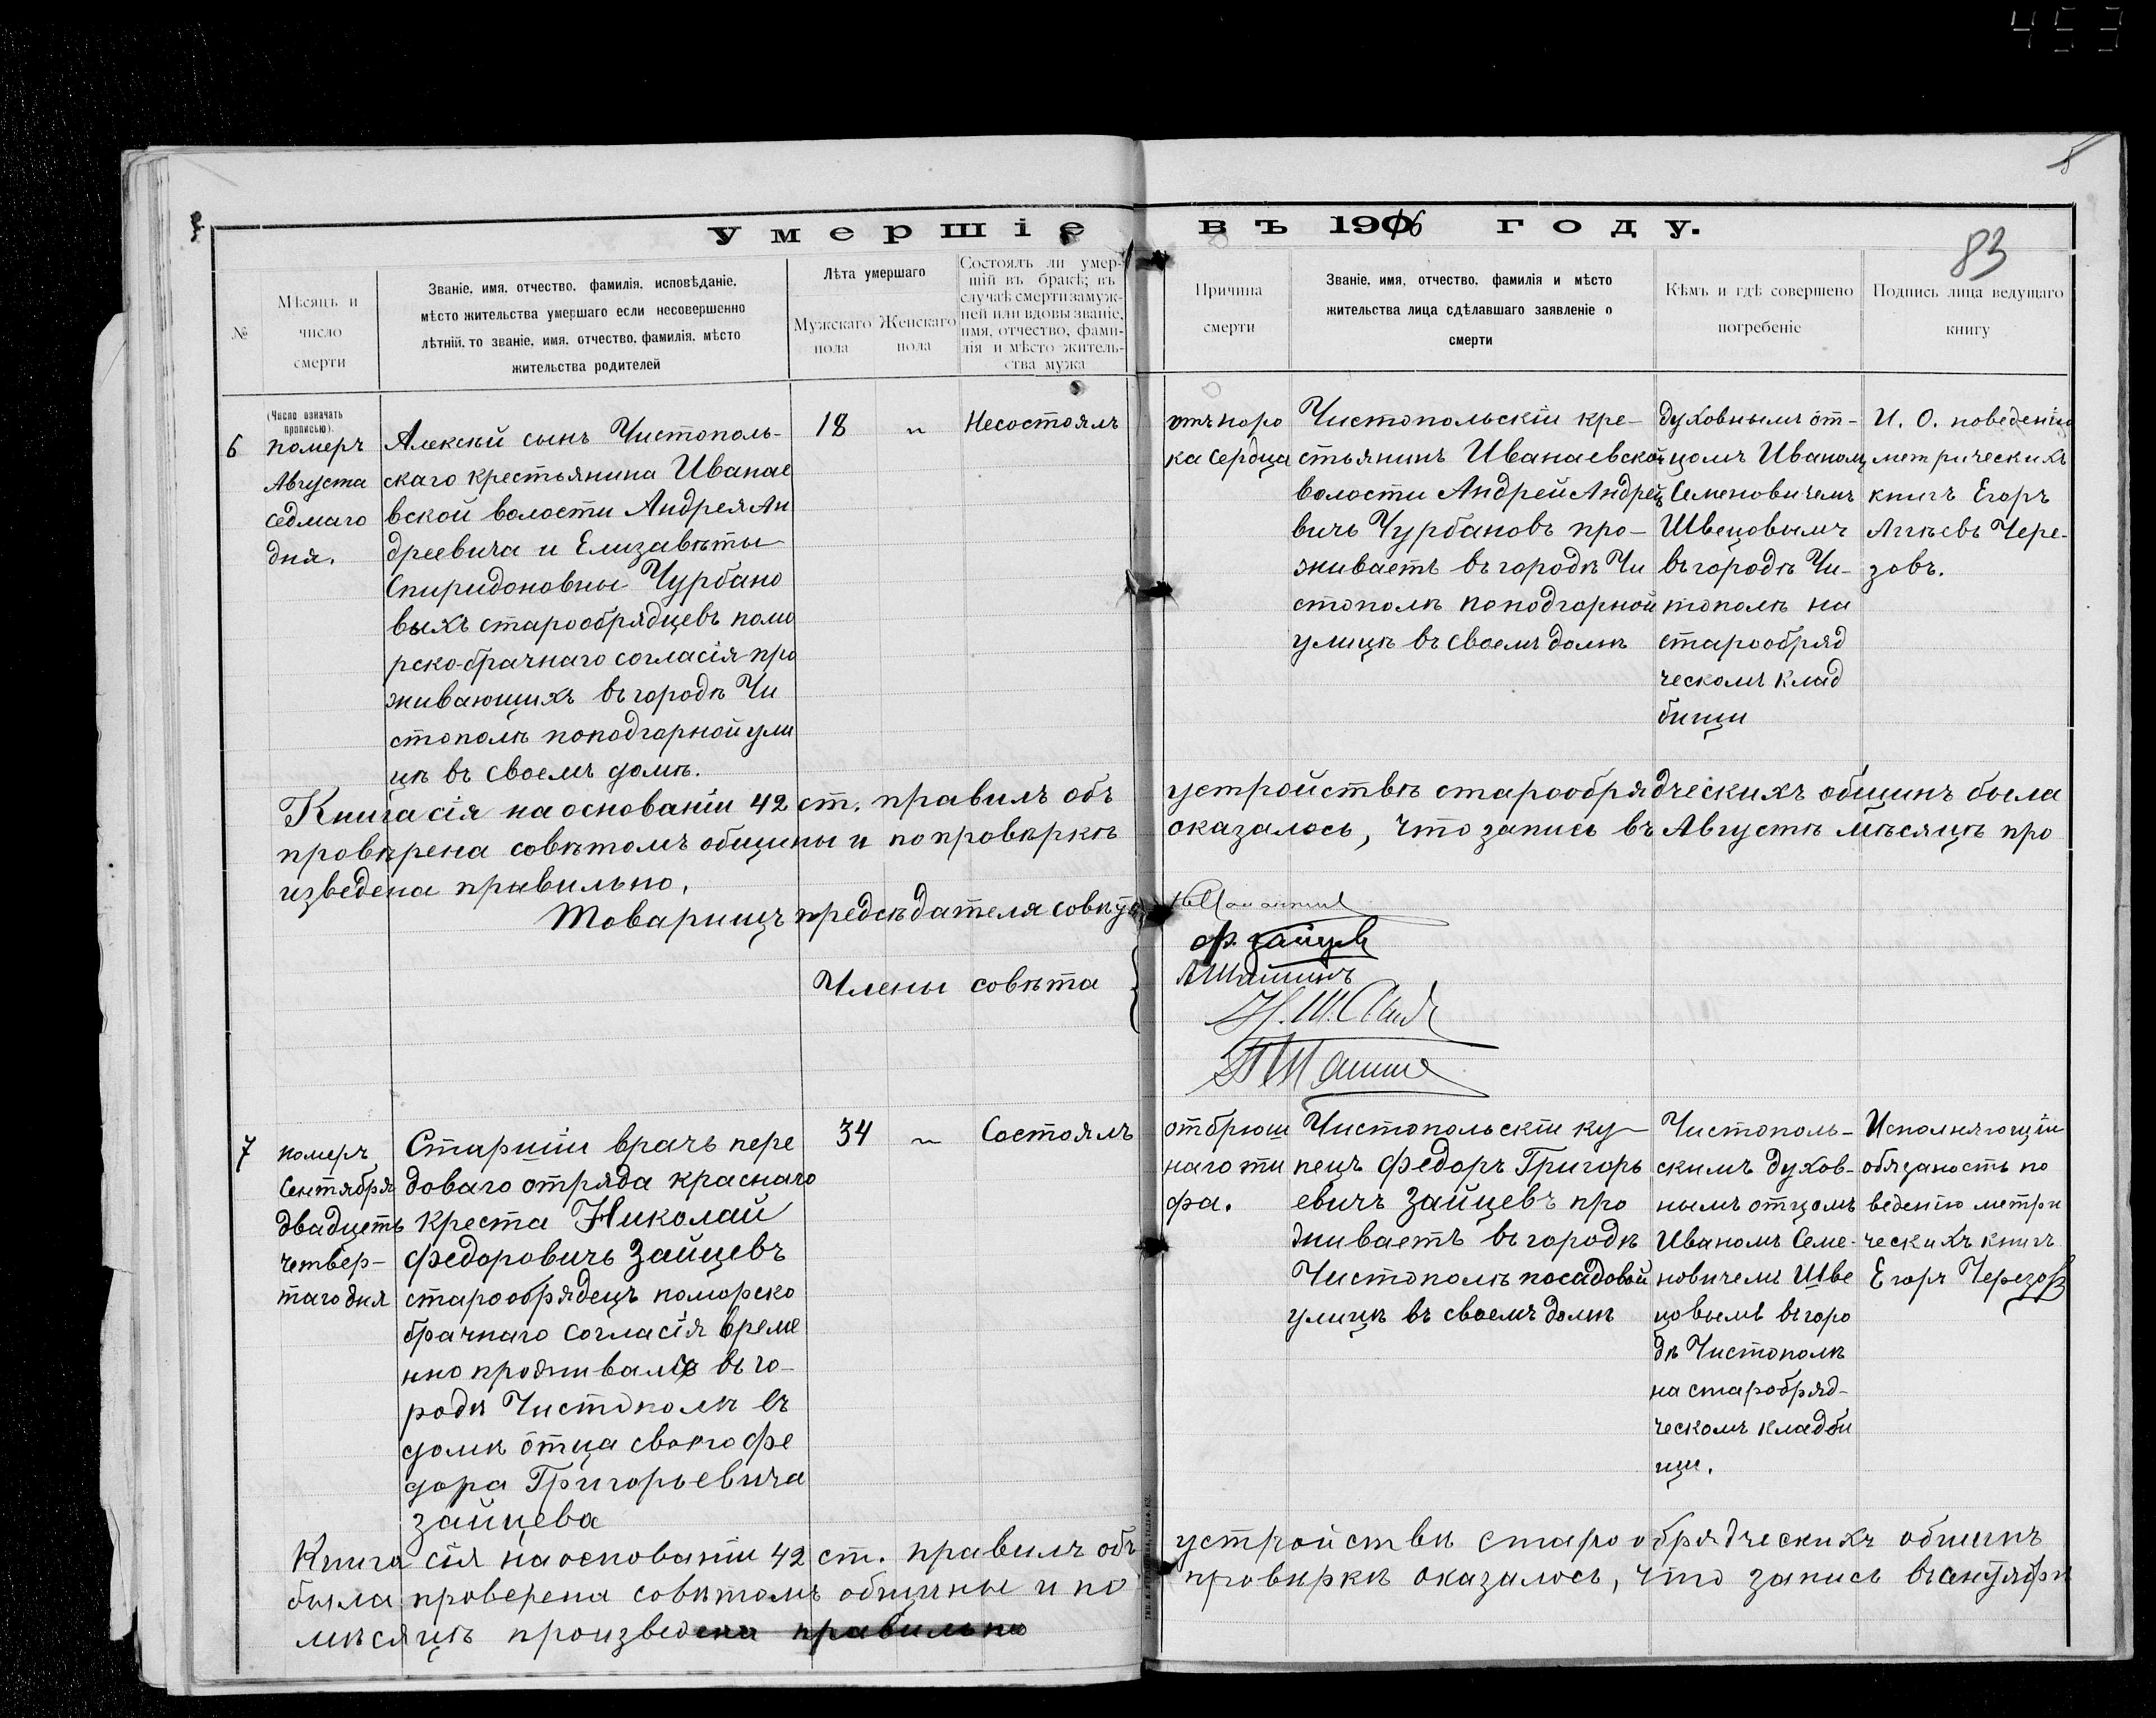 453
Умершіе въ 1906 году.
83
№
Мѣсяцъ и
число
смерти
Званіе, имя, отчество, фамилія, исповѣданіе,
мѣсто жительства умершаго если несовершенно
лѣтній, то званіе, имя, отчество, фамилія, мѣсто
жительства родителей
Лѣта умершаго
Мужскаго
пола
Женскаго
пола
Состоялъ ли умер-
шій въ бракѣ; въ
случаѣ смерти замуж-
ней или вдовы званіе,
имя, отчество, фами-
лія и мѣсто житель-
ства мужа
Причина
смерти
Званіе, имя, отчество, фамилія и мѣсто
жительства лица сдѣлавшаго заявленіе о
смерти
Кѣмъ и гдѣ совершено
погребеніе
Подпись лица ведущаго
книгу
(Число означать
прописью).
6
померъ
Августа
седмаго
дня.
Алексѣй сынъ Чистополь-
скаго крестьянина Иванае
вской волости Андрея Ан
дреевича и Елизавѣты
Спиридоновны Чурбано
выхъ старообрядцевъ помо
рско-брачнаго согласія про
живающихъ въ городѣ Чи
стополѣ поподгорной ули
цѣ въ своемъ домѣ.
18
"
Несостоялъ
отъ поро
ка сердца
Чистопольскій кре-
стьянинъ Иванаевской
волости Андрей Андрее
вичъ Чурбановъ про-
живаетъ въ городѣ Чи
стополѣ поподгорной
улицѣ въ своемъ домѣ
духовнымъ от-
цомъ Иваномъ
Семеновичемъ
Швецовымъ
въ городѣ Чи-
тополѣ на
старообряд
ческомъ клад
бищи
И. О. поведенію
метрическихъ
книгъ Егоръ
Аггѣевъ Чере-
зовъ.
Книга сія на основаніи 42 ст. правилъ объ устройствѣ старообрядческихъ общинъ была
провѣрена совѣтомъ общины и попровѣркѣ оказалось, что запись въ Августѣ мѣсяцѣ про
изведена правильно.
Товарищъ предсѣдателя совѣта
Ф. Зайцев
Члены совѣта
7
померъ
Сентября
двадцеть
четвер-
таго дня
Старшій врачъ пере
доваго отряда краснаго
креста Николай
Федоровичъ Зайцевъ
старообрядецъ поморско
брачнаго согласія време
нно проживалъ въ го-
родѣ Чистополѣ въ
домѣ отца своего Фе
дора Григорьевича
Зайцева
34
"
Состоялъ
отбрюш
наго ти
фа.
Чистопольскій ку-
пецъ Федоръ Григорь
евичъ Зайцевъ про
живаетъ въ городѣ
Чистополѣ посадовой
улицѣ въ своемъ домѣ
Чистополь-
скимъ духов-
нымъ отцомъ
Иваномъ Семе-
новичемъ Шве
цовымъ въ горо
дѣ Чистополѣ
на старобряд-
ческомъ кладби
щи.
Исполняющій
обязаность по
ведению метри
ческихъ книгъ
Егоръ Черезовъ
Книга сія на основаніи 42 ст. правилъ объ устройствѣ старообрядческихъ общинъ
была проверена совѣтомъ общины и по провѣркѣ оказалось, что запись въ сентябрѣ
мѣсяцѣ произведена правильно